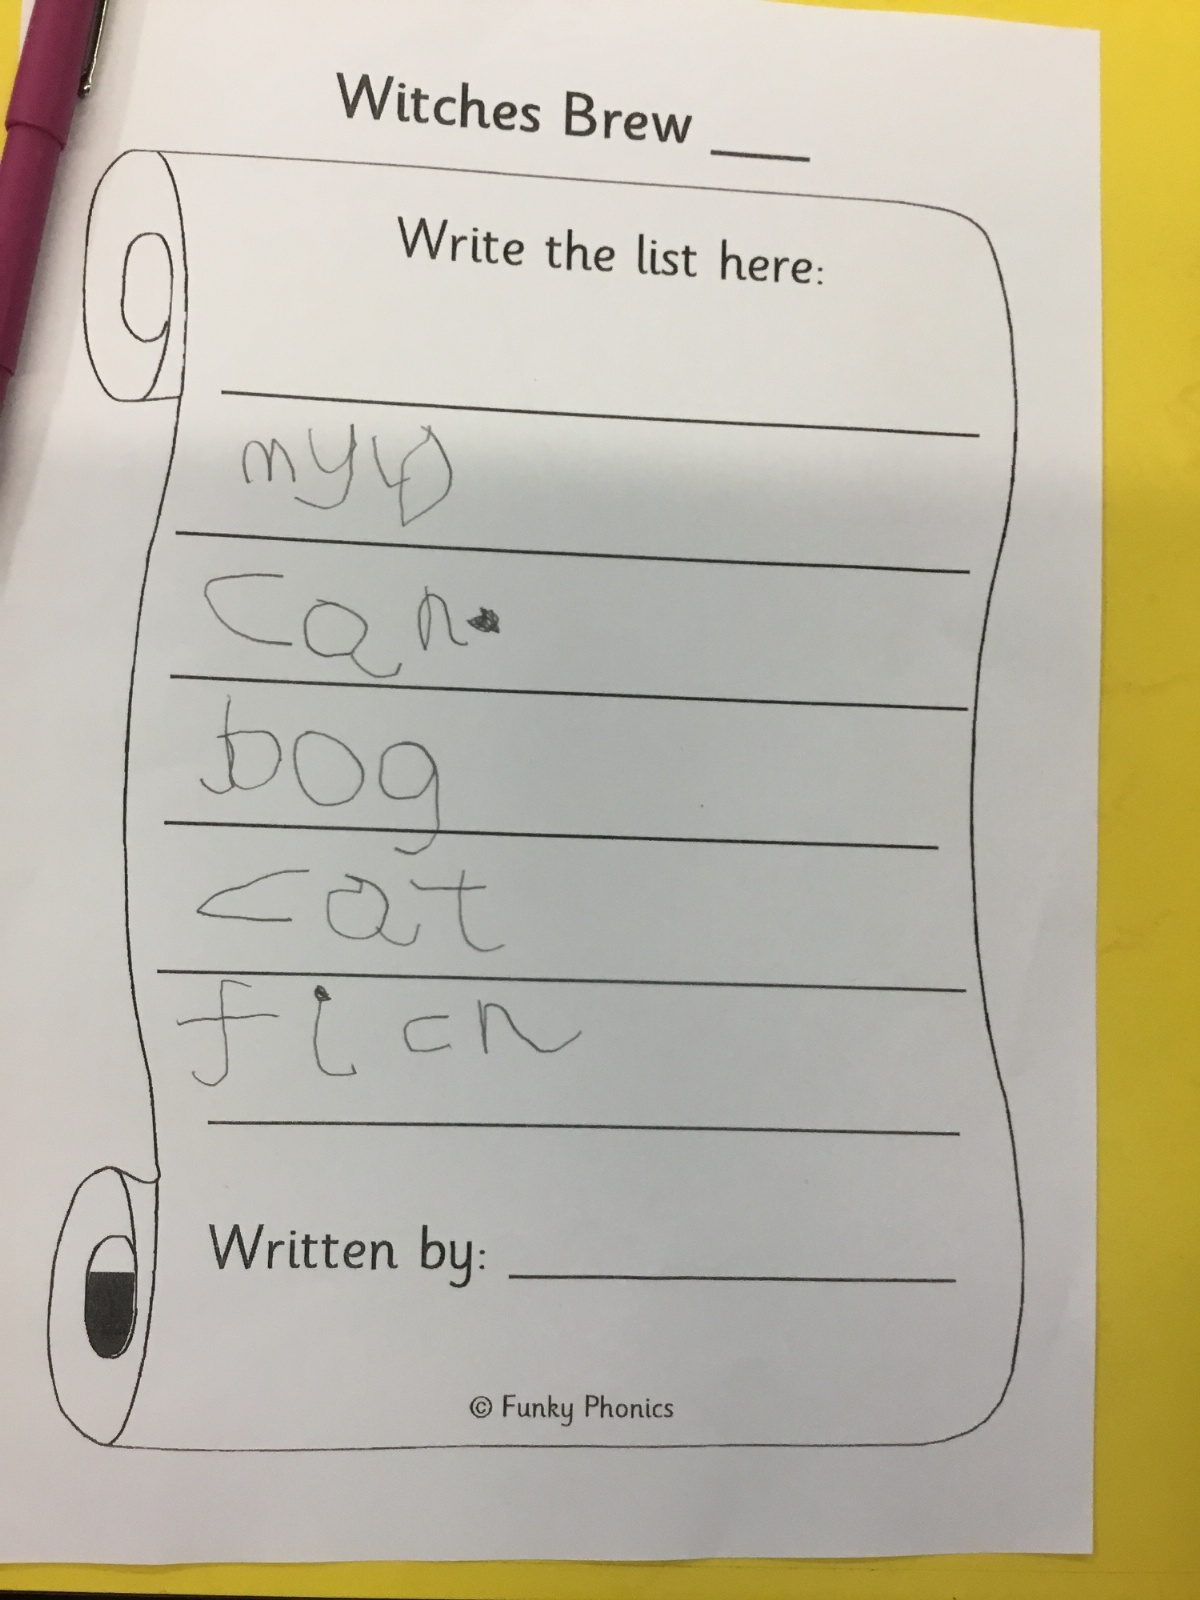 Witches Brew ___
Write the list here:
can
bog
cat
ficn
Written by: ___
© Funky Phonics